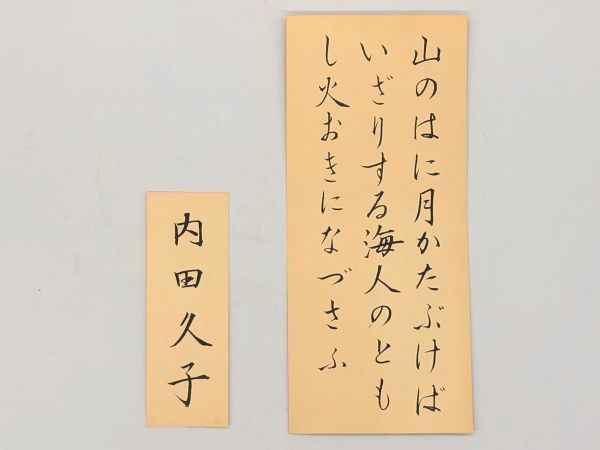 山のはに月かたぶけば
いざりする海人のとも
し火おきになづさふ
内田久子